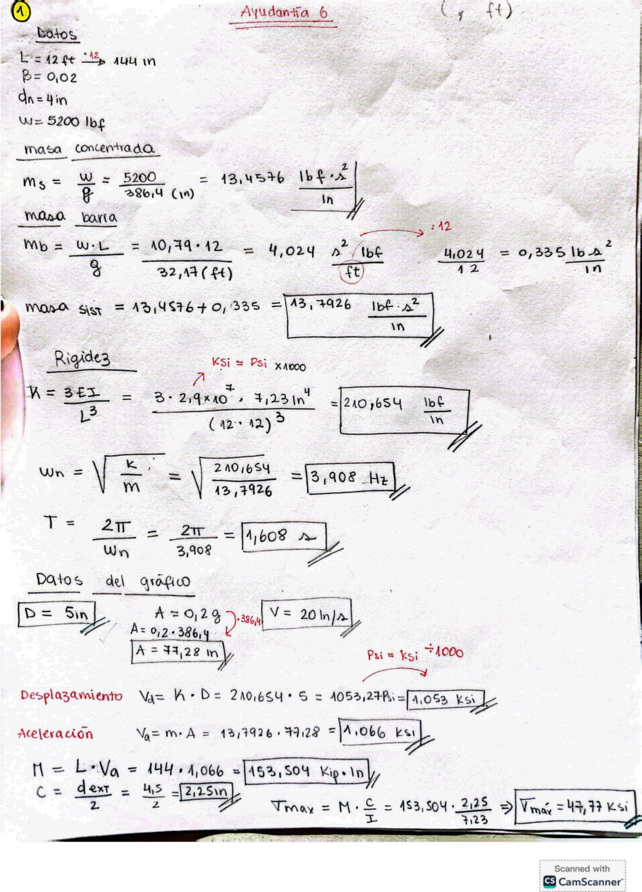 1
Ayudantía 6
( , ft)
Datos
L = 12 ft ·12→ 144 in
β = 0,02
dn = 4 in
W = 5200 lbf
masa concentrada
ms = w/g = 5200/386,4 (in) = 13,4576 lbf·s²/in
masa barra
mb = w·L/g = 10,79·12/32,17(ft) = 4,024 s² lbf/ft ÷12 4,024/12 = 0,335 lb s²/in
masa sist = 13,4576 + 0,335 = 13,7926 lbf·s²/in
Rigidez
Ksi = Psi x1000
K = 3EI/L³ = 3·2,9x10⁷·7,23in⁴/(12·12)³ = 210,654 lbf/in
wn = √(k/m) = √(210,654/13,7926) = 3,908 Hz
T = 2π/wn = 2π/3,908 = 1,608 s
Datos del gráfico
D = 5in A = 0,2g ·386,4 V = 20 in/s
A = 0,2·386,4
A = 77,28 in
Psi = Ksi ÷1000
Desplazamiento Vd = K·D = 210,654·5 = 1053,27Psi = 1,053 Ksi
Aceleración Va = m·A = 13,7926·77,28 = 1,066 Ksi
M = L·Va = 144·1,066 = 153,504 Kip·In
C = dext/2 = 4,5/2 = 2,25in
σmax = M·C/I = 153,504·2,25/7,23 ⇒ σmáx = 47,77 Ksi
Scanned with
CS CamScanner